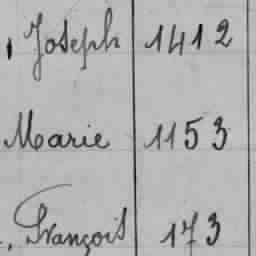 Joseph 1412
Marie 1153
François 173